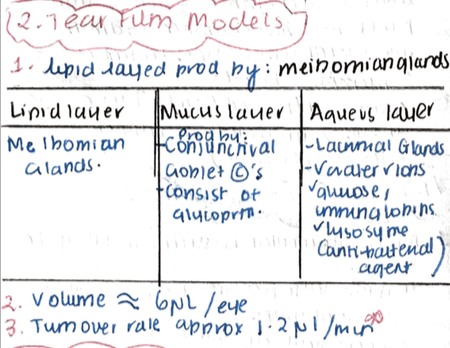 2. Tear Film Models
1. lipid layed prod by: meibomian glands
Lipid layer
Mucus layer
Aqueus layer
Meibomian
Glands.
Prod by:
- Conjunctival
Goblet ©'s
- Consist of
glycoprtn.
- Lacrimal Glands
- Water √ ions
√ glucose,
immunglobins
√ lysosyme
(anti-bacterial
agent)
2. Volume ≈ 6µL/eye
3. Turnover rate approx 1.2µl/min